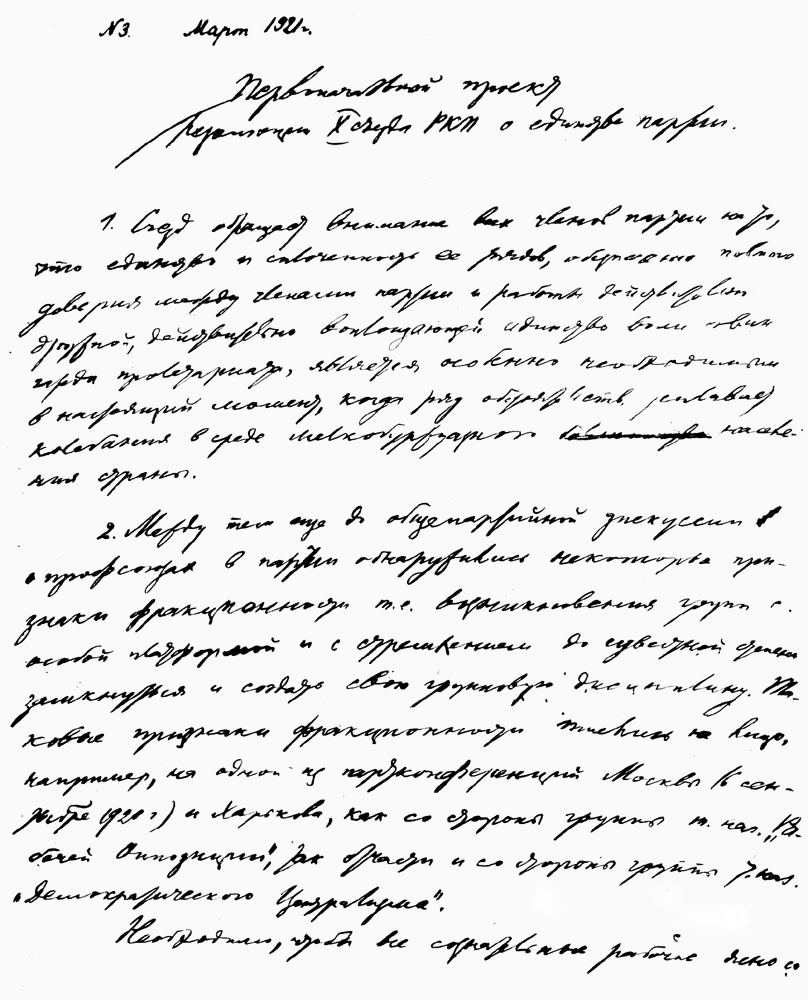 N3. Март 1921 г.
Первоначальный проект
резолюции X съезда РКП о единстве партии.
1. Съезд обращает внимание всех членов партии на то,
что единство и сплоченность ее рядов, обеспечение полного
доверия между членами партии и работы действительно
дружной, действительно воплощающей единство воли аван-
гарда пролетариата, является особенно необходимым
в настоящий момент, когда ряд обстоятельств усиливает
колебания в среде мелкобуржуазного населе-
ния страны.
2. Между тем еще до общепартийной дискуссии
о профсоюзах в партии обнаружились некоторые при-
знаки фракционности т.е. возникновения групп с
особой платформой и с стремлением до известной степени
замкнуться и создать свою групповую дисциплину. Та-
ковые признаки фракционности имелись на лицо,
например, на одной из партконференций Москвы (в сен-
тябре 1920 г) и Харькова, как со стороны группы т. наз. „Ра-
бочей Оппозиции", так отчасти и со стороны группы т. наз.
„Демократического Централизма".
Необходимо, чтобы все сознательные рабочие ясно со